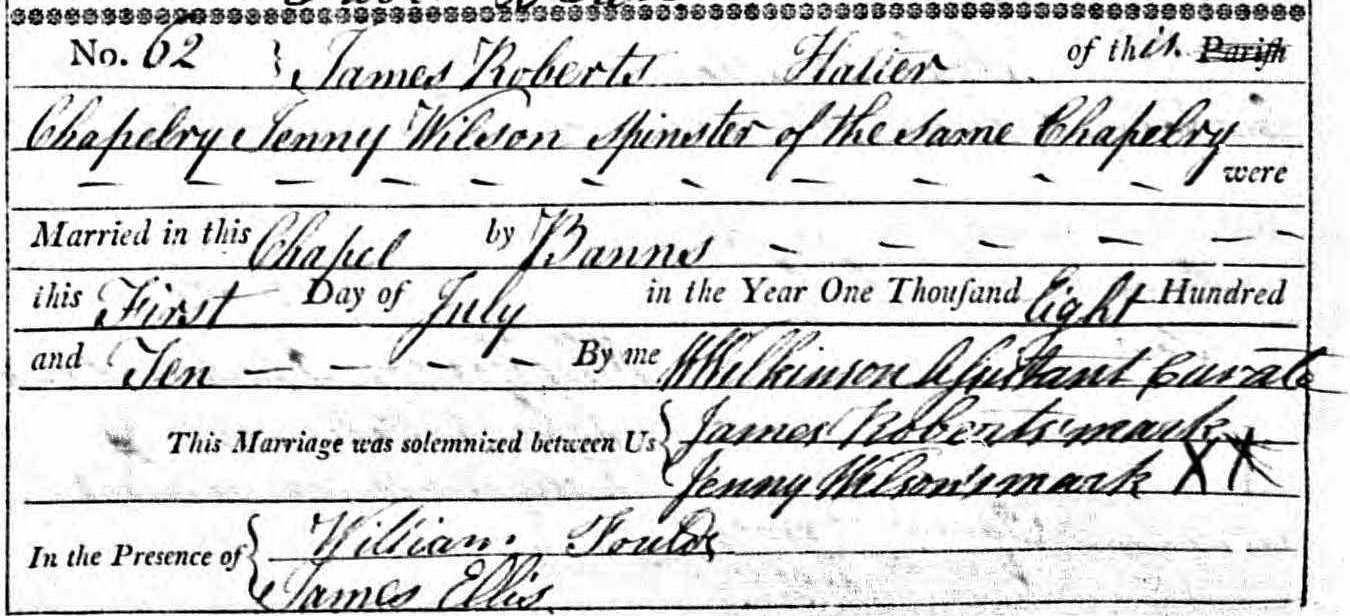 No. 62 } James Roberts Hatter of this Parish
Chapelry Jenny Wilson spinster of the same Chapelry
— — — — — — — — — — — were
Married in this Chapel by Banns — — — — — —
this First Day of July in the Year One Thouſand Eight Hundred
and Ten — — — — By me WWilkinson Aſsistant Curate
This Marriage was solemnized between Us { James Roberts' mark X
Jenny Wilson's mark X
In the Presence of { William Foulds
James Ellis